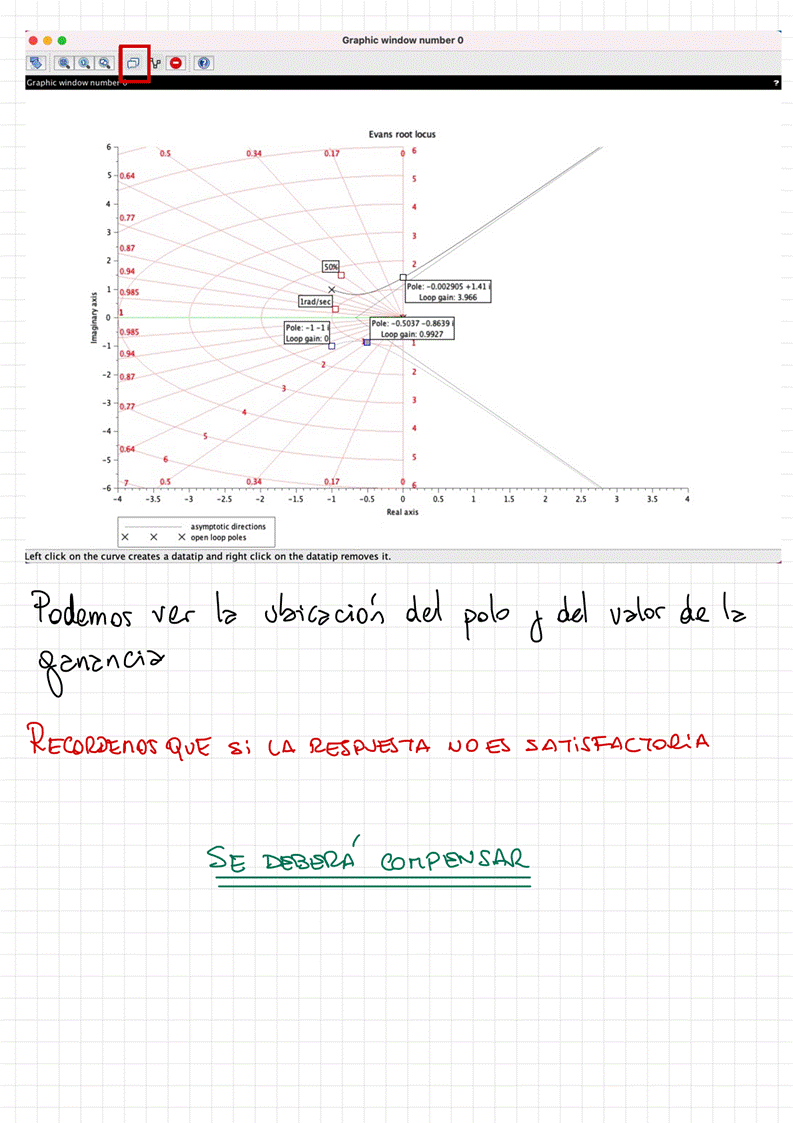 Graphic window number 0
Graphic window number 0
?
Evans root locus
6
5
4
3
2
1
0
-1
-2
-3
-4
-5
-6
Imaginary axis
0.5 0.34 0.17 0 6
0.64 5
0.77 4
0.87 3
0.94 2
0.985
1
0.985 1
0.94 2
0.87 3
0.77 4
0.64 5
7 0.5 0.34 0.17 0 6
2
3
4
5
6
50%
1rad/sec
Pole: -0.002905 +1.41 i
Loop gain: 3.966
Pole: -1 -1 i
Loop gain: 0
Pole: -0.5037 -0.8639 i
Loop gain: 0.9927
-4 -3.5 -3 -2.5 -2 -1.5 -1 -0.5 0 0.5 1 1.5 2 2.5 3 3.5 4
Real axis
asymptotic directions
open loop poles
Left click on the curve creates a datatip and right click on the datatip removes it.
Podemos ver la ubicación del polo y del valor de la
ganancia
RECORDEMOS QUE Si LA RESPUESTA NO ES SATiSFACTORiA
SE DEBERÁ COMPENSAR